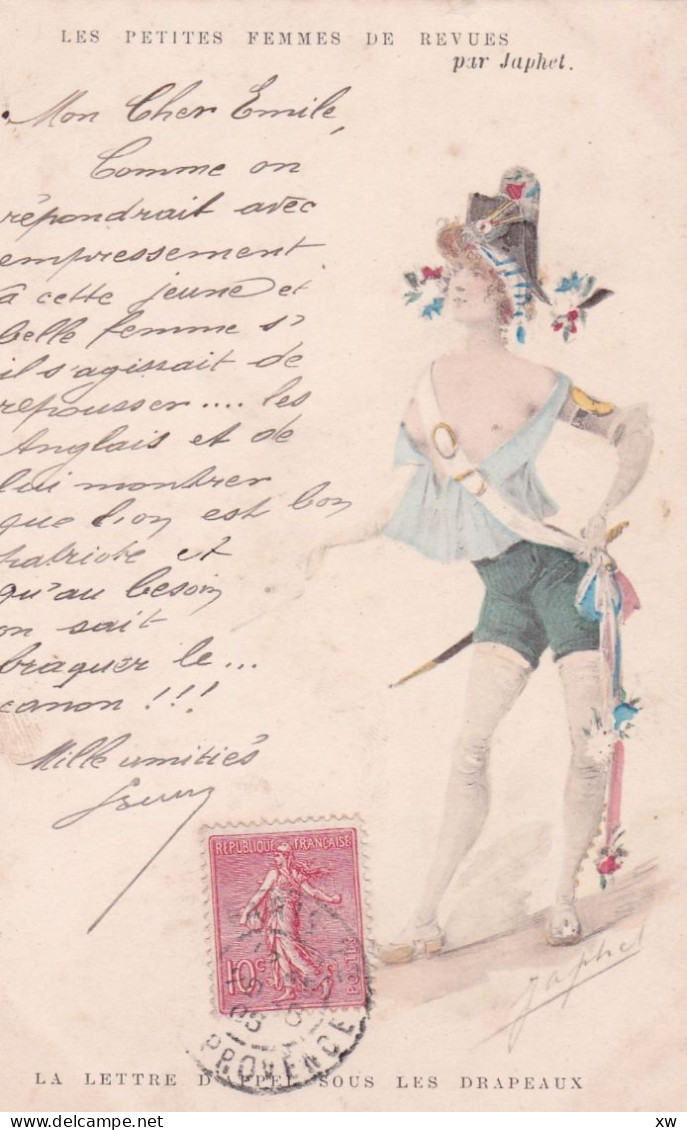 LES PETITES FEMMES DE REVUES
par Japhet.
Mon Cher Emile,
Comme on
répondrait avec
empressement
à cette jeune et
belle femme s'
il s'agissait de
repousser .... les
Anglais et de
lui montrer
que l'on est bon
patriote et
qu'au besoin
on sait
braquer le...
canon !!!
Mille amitiés
RÉPUBLIQUE FRANÇAISE
10c
POSTES
PROVENCE
Japhet
LA LETTRE D'APPEL SOUS LES DRAPEAUX
xw